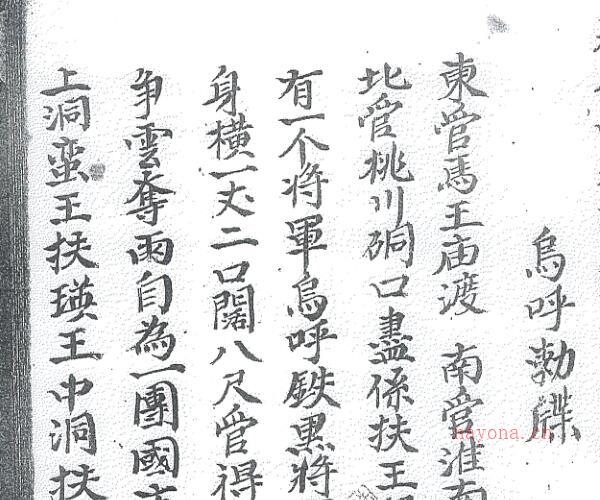 烏呼勅牒
東管馬王庙渡 南管淮南
北管桃川硐口盡係扶王
有一个将軍烏呼鉄黒将
身橫一丈二口闊八尺管得
争雲奪雨自為一團國
上洞蛮王扶瑛王中洞扶
nayona.cn